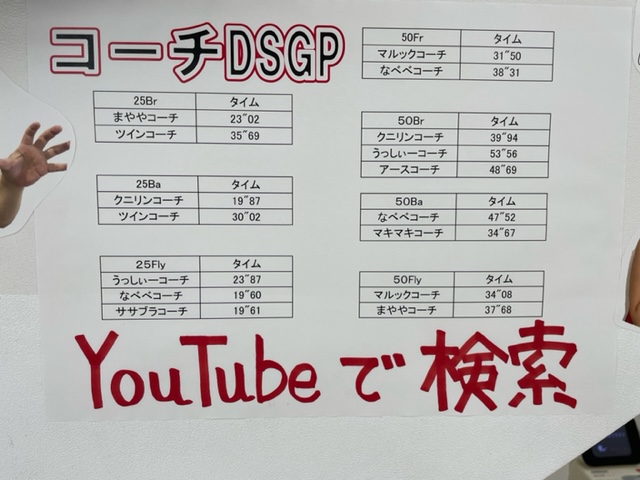 コーチDSGP
25Br タイム
まややコーチ 23"02
ツインコーチ 35"69
25Ba タイム
クニリンコーチ 19"87
ツインコーチ 30"02
25Fly タイム
うっしぃーコーチ 23"87
なべべコーチ 19"60
ササブラコーチ 19"61
50Fr タイム
マルックコーチ 31"50
なべべコーチ 38"31
50Br タイム
クニリンコーチ 39"94
うっしぃーコーチ 53"56
アースコーチ 48"69
50Ba タイム
なべべコーチ 47"52
マキマキコーチ 34"67
50Fly タイム
マルックコーチ 34"08
まややコーチ 37"68
YouTubeで検索